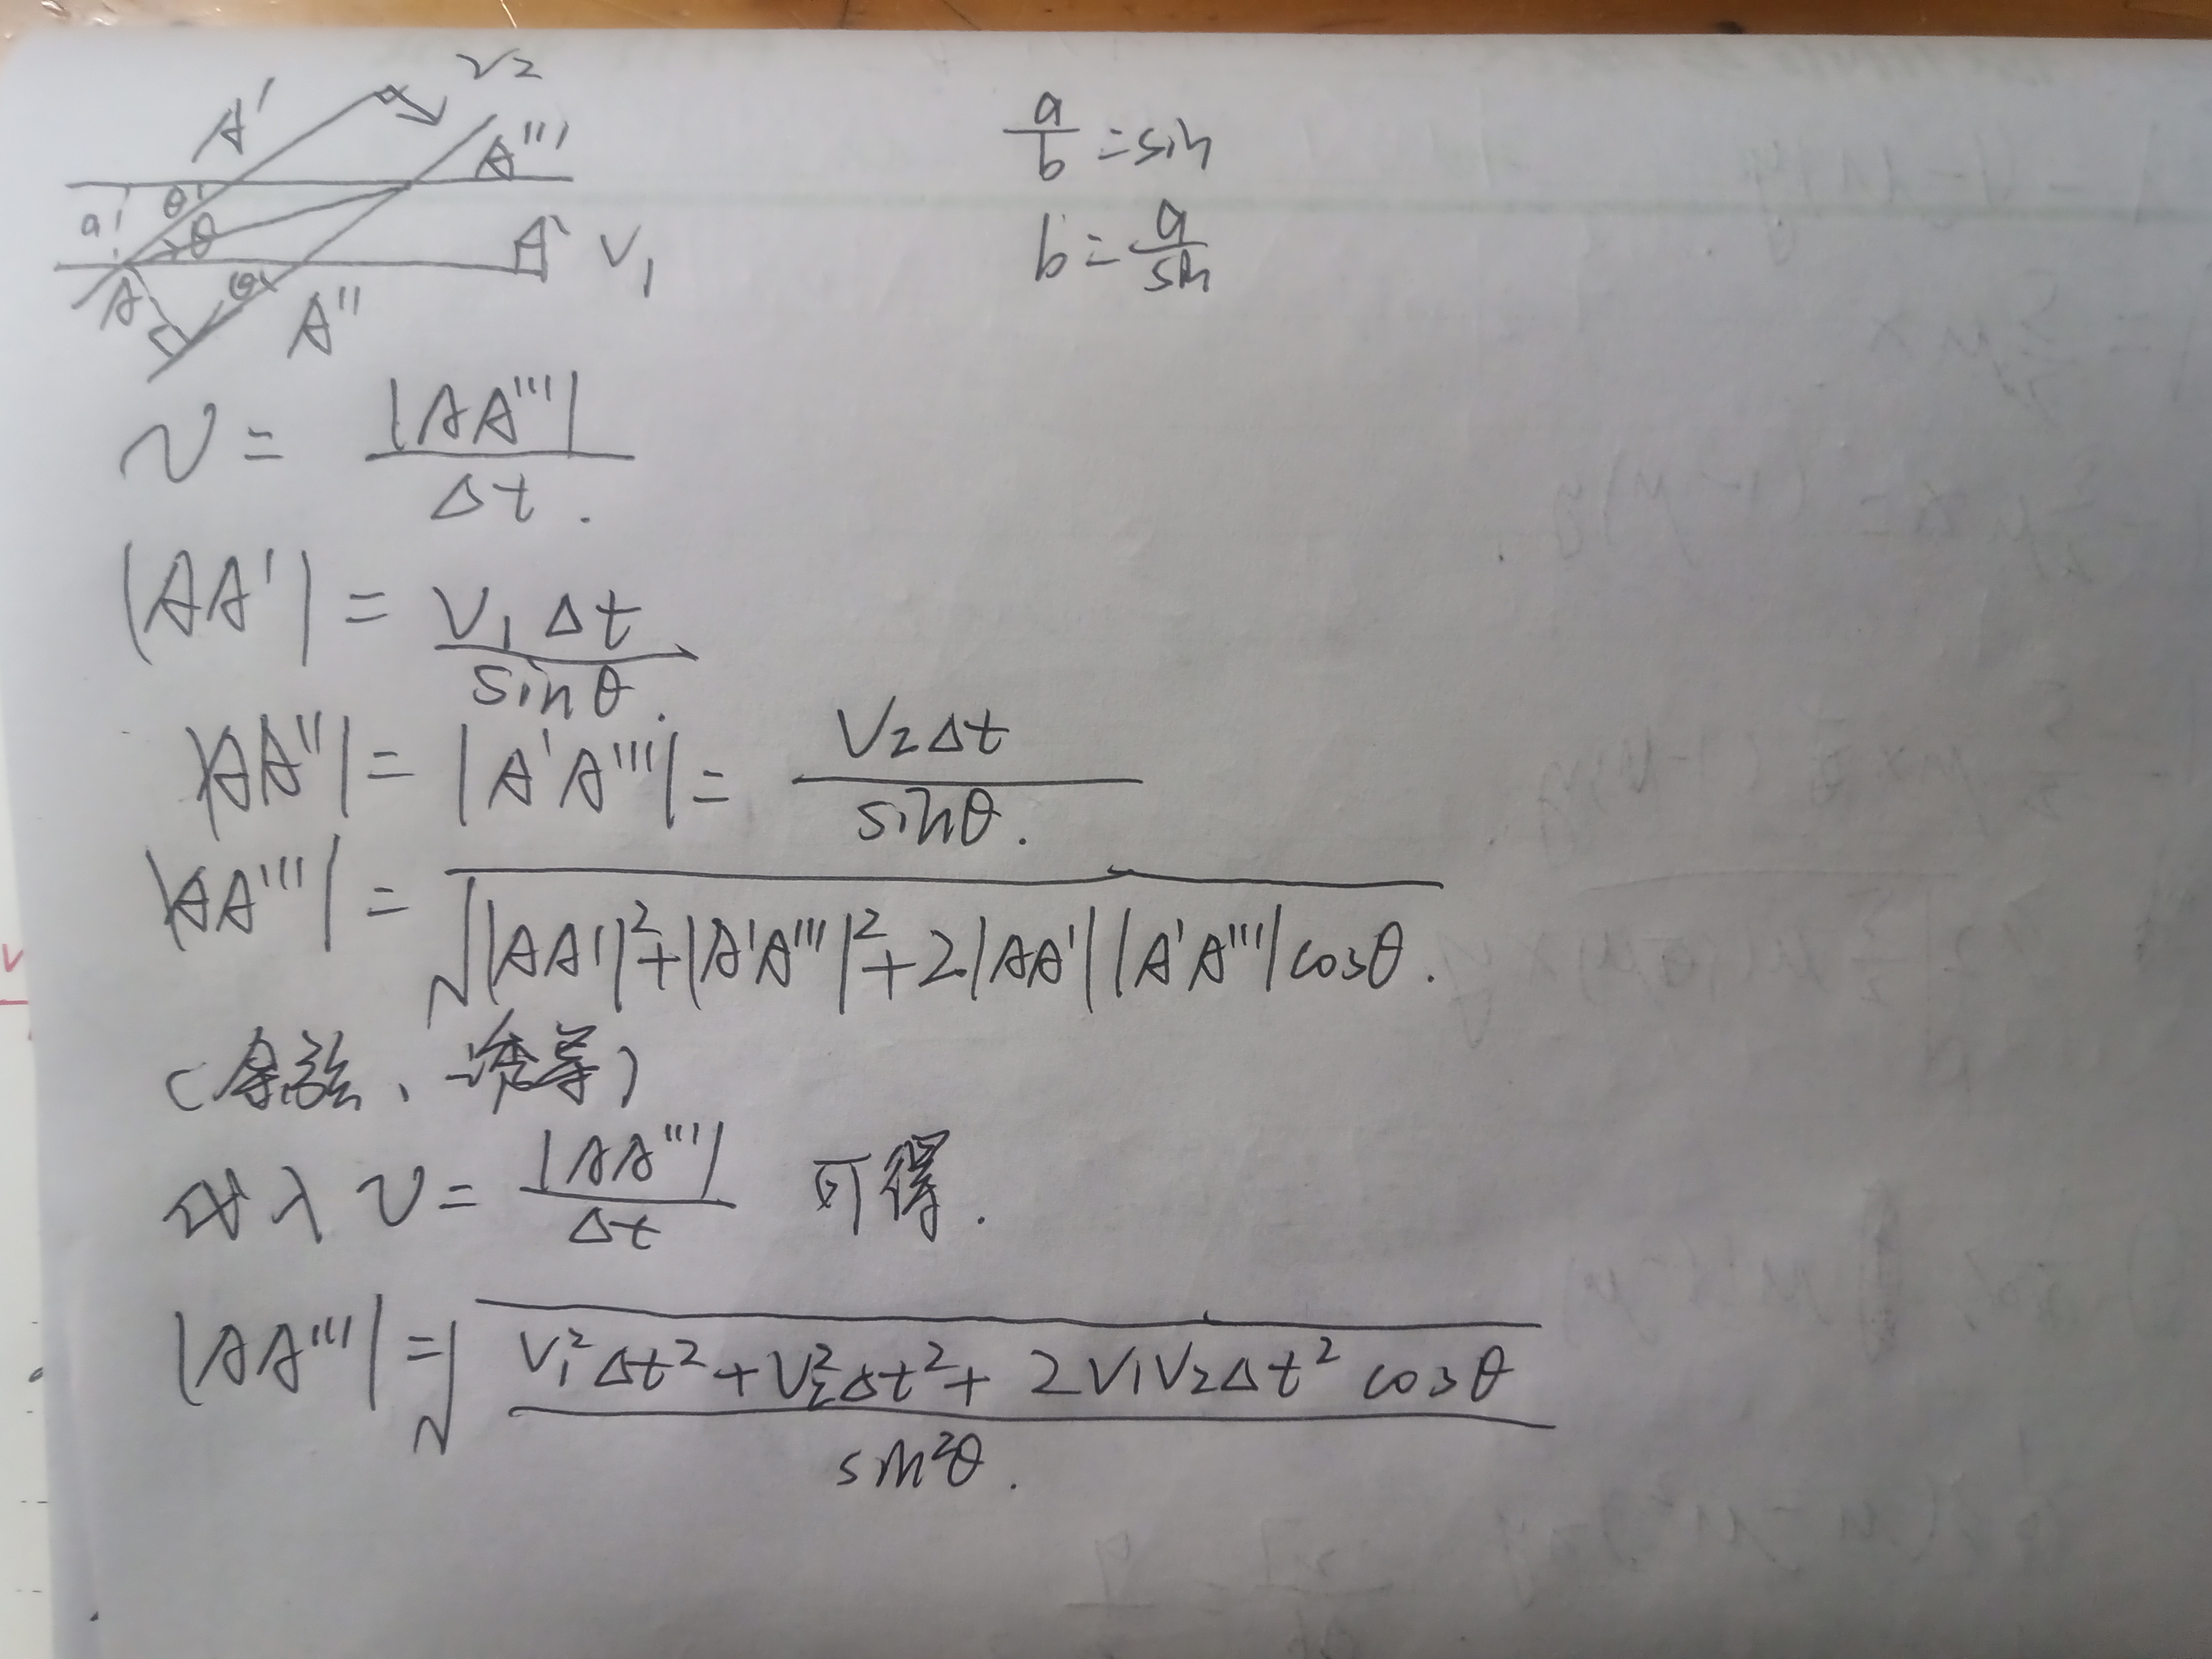 v2
A'
A'''
a
θ
θ
A
V1
A
θ
A''
a/b = sin
b = a/sin
v = |AA'''|/Δt.
|AA'| = V1Δt/sinθ.
|AA''| = |A'A'''| = V2Δt/sinθ.
|AA'''| = √(|AA'|²+|A'A'''|²+2|AA'||A'A'''|cosθ.)
(余弦、诱导)
代入 v = |AA'''|/Δt 可得.
|AA'''| = √((V1²Δt²+V2²Δt²+2V1V2Δt²cosθ)/sin²θ.)